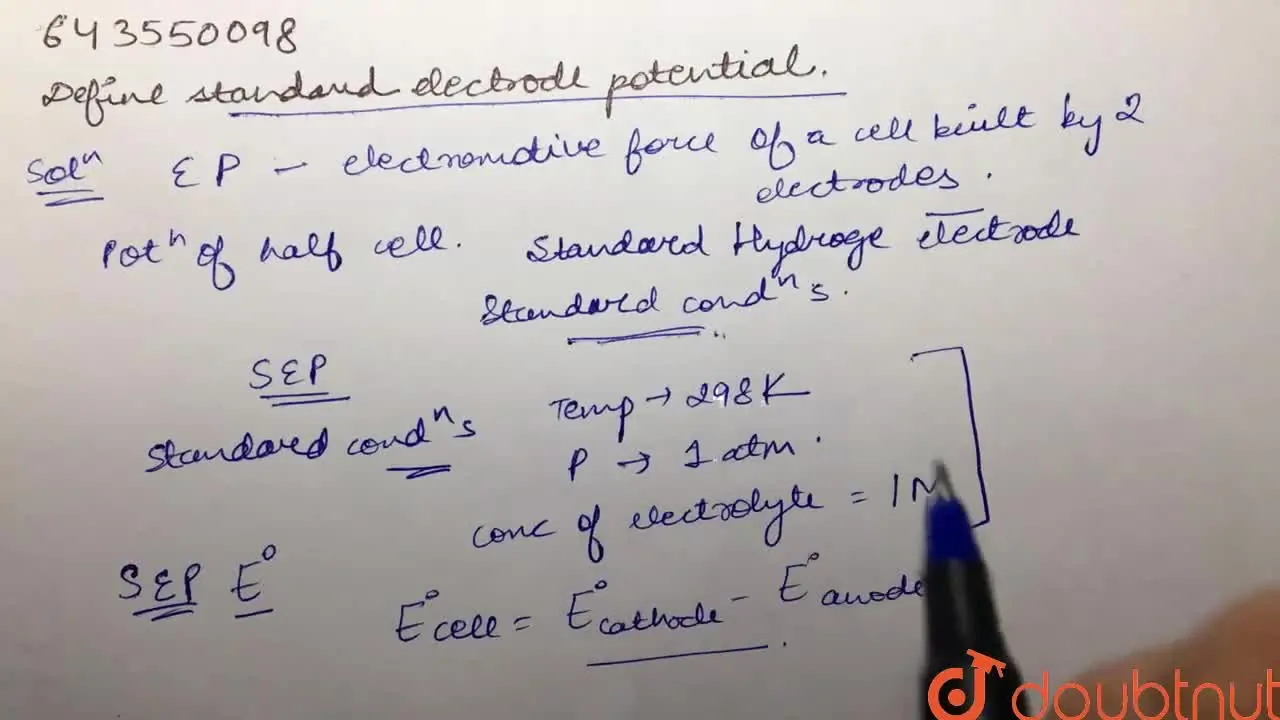 643550098
Define standard electrode potential.
Solⁿ EP - electromotive force of a cell built by 2
electrodes.
Potⁿ of half cell. Standard Hydroge electrode
Standard condⁿs.
SEP
Standard condⁿs Temp → 298K
P → 1 atm.
conc of electrolyte = 1M
SEP E°
E°cell = E°cathode - E°anode
doubtnut